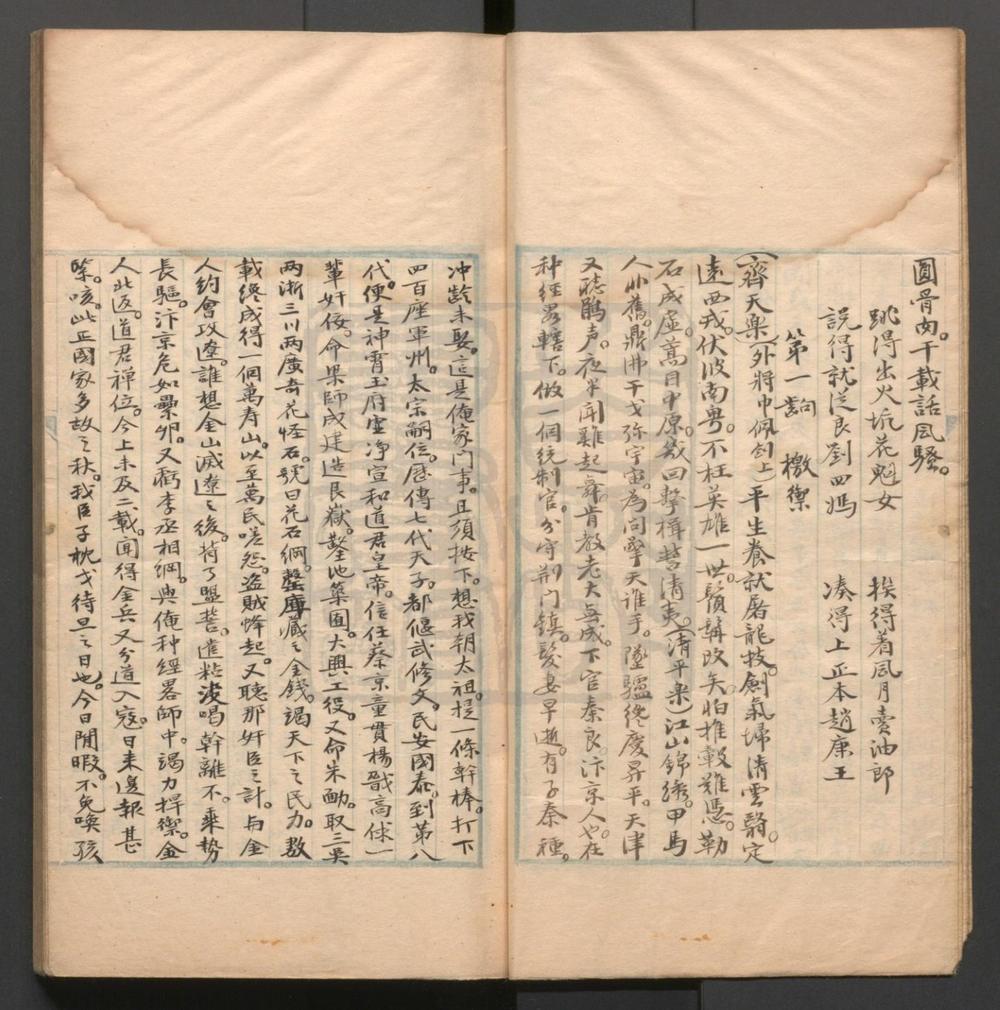 圓骨肉。千載話風騷。
跳得出火坑花魁女　挨得着風月賣油郎
說得就從良劉四媽　湊得上正本趙康王
第一齣　檄禦
(齊天樂)(外將巾佩劍上)平生養就屠龍技。劍氣埽清雲翳。定
遠西戎。伏波南粤。不枉英雄一世。鬚髯改矣。怕推轂難憑。勒
石成虛。蒿目中原。幾回擊楫誓清夷。(清平樂)江山錦綉。甲馬
人非舊。鼎沸干戈弥宇宙。為问擎天谁手。墜驢終慶昇平。天津
又聴鵑声。夜半闻雞起舞。肯教老大無成。下官秦良。汴京人也。在
种經畧轄下。做一個統制官。分守荆门鎮。髮妻早逝。有子秦種。
冲齡未娶。這是俺家门事。且須按下。想我朝太祖。提一條幹棒。打下
四百座軍州。太宗嗣位。歷傳七代天子。都偃武修文。民安國泰。到第八
代。便是神霄玉府虛净宣和道君皇帝。信任蔡京童貫楊戩高俅一
輩奸佞。命梁師成建造艮嶽。鑿池築囿。大興工役。又命朱勔。取三吳
两浙三川两廣奇花怪石。號曰花石綱。罄庫藏之金錢。竭天下之民力。数
載終成得一個萬寿山。以至萬民嗟怨。盗賊蜂起。又聴那奸臣之計。与金
人約會攻遼。誰想金山滅遼之後。背了盟誓。遣粘没喝幹離不。乘势
長驅。汴京危如壘卵。又虧李丞相綱。與俺种經畧師中。竭力捍禦。金
人北返。道君禅位。今上未及二載。闻得金兵又分道入寇。日来邊報甚
緊。咳。此正國家多故之秋。我臣子枕戈待旦之日也。今日閒暇。不免喚孩